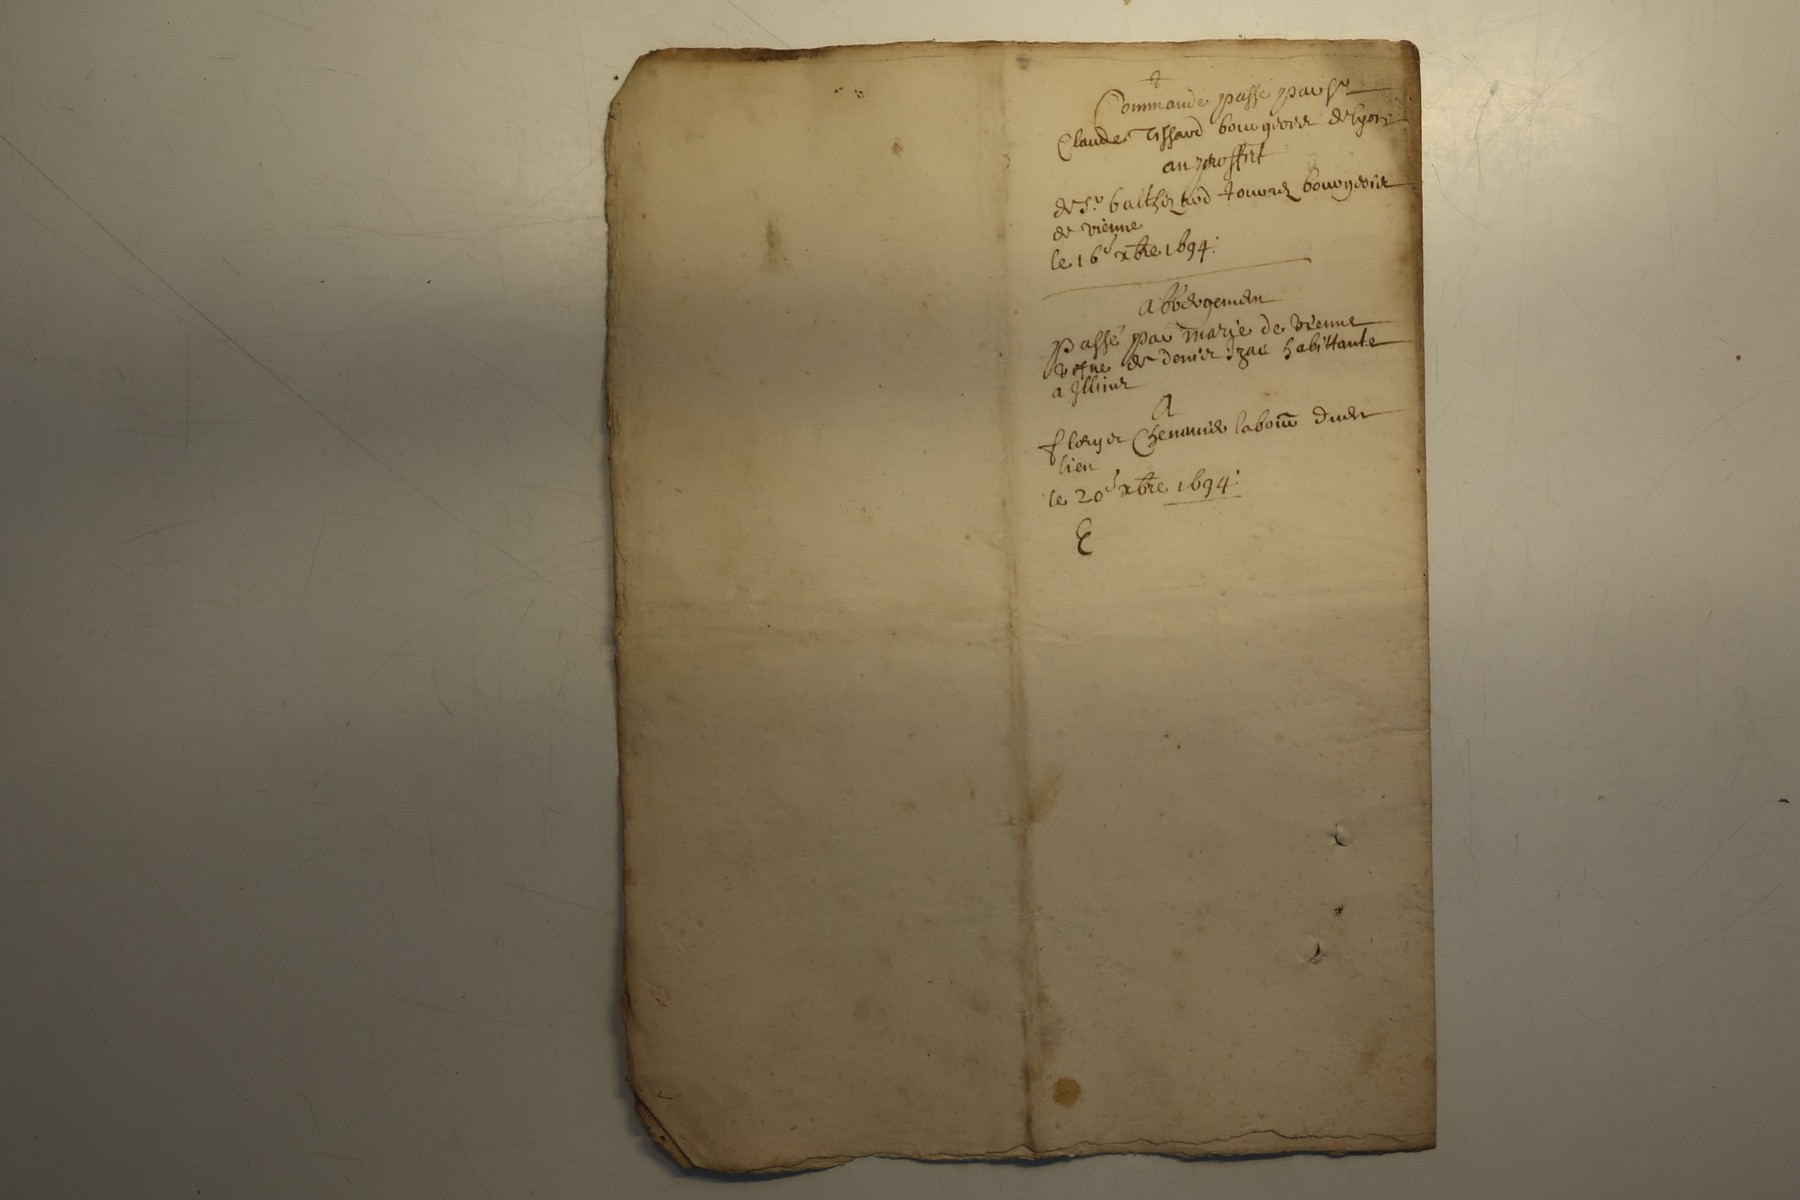 Commande passé par sr
Claude Tissard bourgeois de lyon
au proffit
de sr balthezard bourgeois
de vienne
le 16e xbre 1694.
Abbergement
passé par marie de vienne
vefve de denis Izac habittante
a Illins
A
Chenavier labour dudt
lieu
le 20e xbre 1694.
E